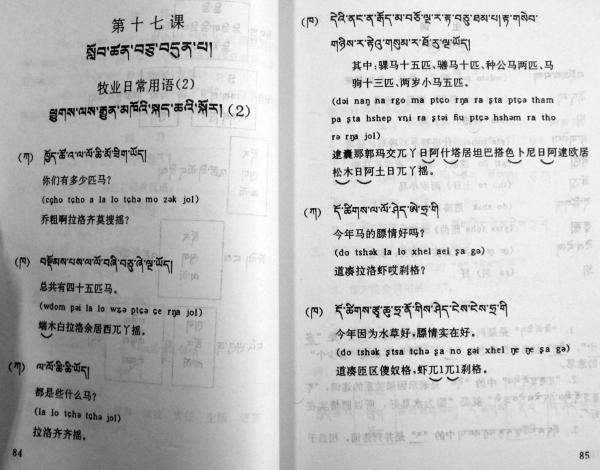 第十七课
སློབ་ཚན་བཅུ་བདུན་པ།
牧业日常用语(2)
ཕྱུགས་ལས་རྒྱུན་མཁོའི་སྐད་ཆའི་སྐོར། (2)
(ཀ) ཁྱོད་ཚོ་འ་ལ་ལོ་ཆི་མོ་ཟིག་ཡོད།
你们有多少匹马?
(cçho tçho a la lo tçha mo zək jol)
乔粗啊拉洛齐莫搜摇?
(ཁ) བསྡོམས་པས་ལ་ལོ་བཞི་བཅུ་ཞེ་ལྔ་ཡོད།
总共有四十五匹马。
(wdom pəi la lo wʐə ptçə çe rŋa jol)
端木白拉洛余居西兀丫摇。
(ཀ) ལ་ལོ་ཆི་ཆི་ཡོད།
都是些什么马?
(la lo tçhə tçhə jol)
拉洛齐齐摇。
84
(ཁ) དེའི་ནང་ན་རྒོད་མ་བཅོ་ལྔ་ར་རྟ་བཅུ་ཐམ་པ། རྟ་གསེབ་
གཉིས་ར་རྟེའུ་གསུམ་ར་ཐོ་རུ་ལྔ་ཡོད།
其中:骒马十五匹、骟马十匹、种公马两匹、马
驹十三匹、两岁小马五匹。
(dəi naŋ na rgo ma ptço rŋa ra ʂta ptçə tham
pa ʂta hshep vɲi ra ʂtəi ɦu ptçə hshəm ra tho
rə rŋa jol)
逮囊那郭玛交兀丫日阿什塔居坦巴搭色卜尼日阿逮欧居
松木日阿土日兀丫摇。
(ཀ) དོ་ཚིགས་ལ་ལོ་ཤེད་ཨེ་ཧྲ་གི
今年马的膘情好吗?
(do tshək la lo xhel aei ʂa gə)
道凑拉洛虾哎刹格?
(ཁ) དོ་ཚིགས་རྩྭ་ཆུ་ཧྲ་ནོ་གིས་ཤེད་ངེས་ངེས་ཧྲ་གི
今年因为水草好,膘情实在好。
(do tshək ʂtsa tçhə ʂa no gəi xhel ŋe ŋe ʂa gə)
道凑匝区傻奴格,虾兀1兀1刹格。
85